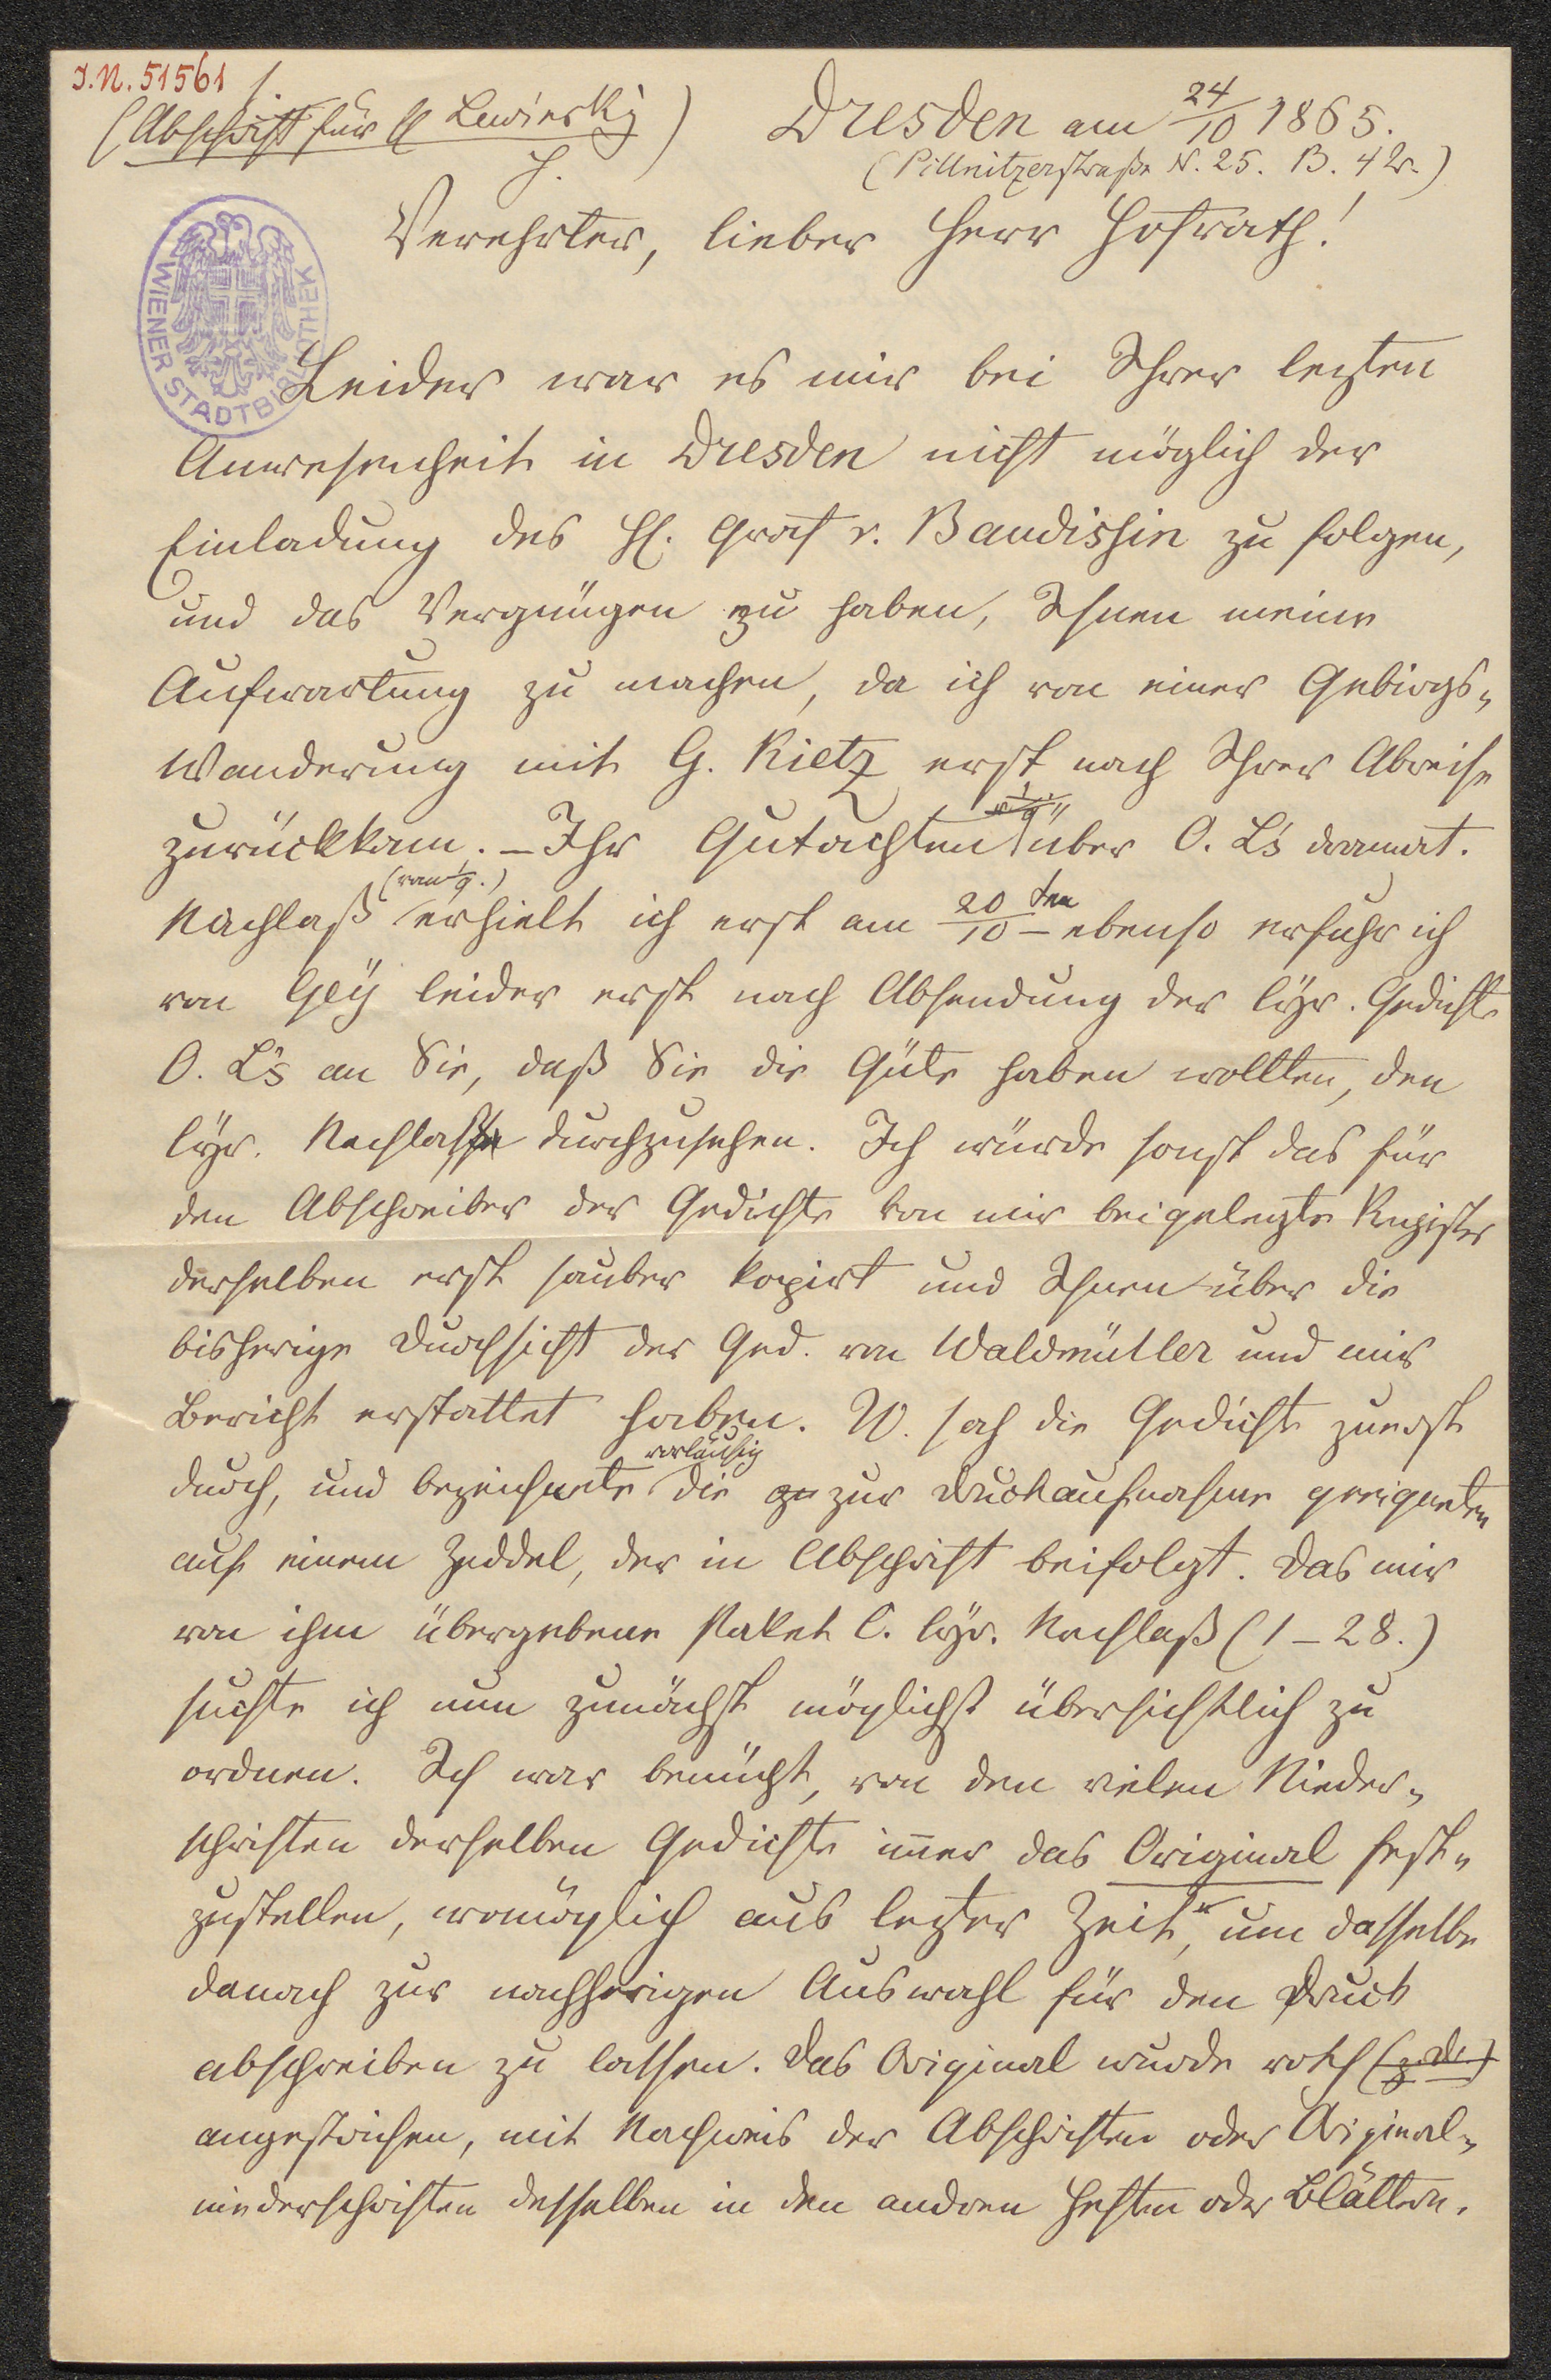 J.N. 51561
1.
(Abschrift für H Lewinsky)
Dresden am 24/10 1865.
(Pillnitzerstraße N. 25. B. 4 Tr.)
Verehrter, lieber Herr Hofrath!
WIENER STADTBIBLIOTHEK
Leider war es mir bei Ihrer lezten
Anwesenheit in Dresden nicht möglich der
Einladung des H. Graf v. Baudissin zu folgen,
und das Vergnügen zu haben, Ihnen meine
Aufwartung zu machen, da ich von einer Gebirgs-
Wanderung mit G. Rietz erst nach Ihrer Abreise
zurückkam. – Ihr Gutachten über O. L's dramat.
(vom 1/9.)
Nachlaß erhielt ich erst am 20/10 ten – ebenso erfuhr ich
von Gey leider erst nach Absendung der lyr. Gedichte
O. L's an Sie, daß Sie die Güte haben wollten, den
lyr. Nachlaß durchzusehen. Ich würde sonst das für
den Abschreiber der Gedichte von mir beigelegte Register
derselben erst sauber kopirt und Ihnen über die
bisherige Durchsicht der Ged. von Waldmüller und mir
Bericht erstattet haben. W. sah die Gedichte zuerst
vorläufig
durch, und bezeichnete die zu zur Druckaufnahme geeigneten
auf einem Zeddel, der in Abschrift beifolgt. Das mir
von ihm übergebene Paket C. lyr. Nachlaß (1–28.)
suchte ich nun zunächst möglichst übersichtlich zu
ordnen. Ich war bemüht, von den vielen Nieder-
schriften derselben Gedichte immer das Original fest-
zustellen, womöglich aus lezter Zeit, um dasselbe
danach zur nachherigen Auswahl für den Druck
abschreiben zu lassen. Das Original wurde roth (z. D.)
angestrichen, mit Nachweis der Abschriften oder Original-
niederschriften desselben in den andren Heften oder Blättern.